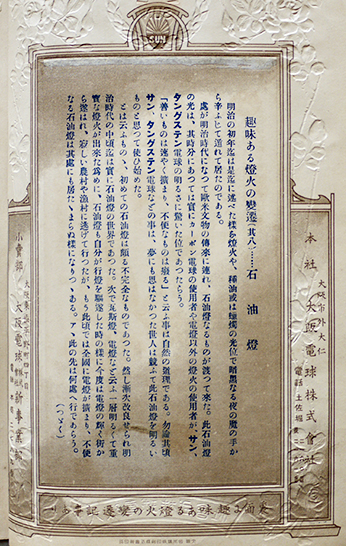 SUN
趣味ある燈火の變遷(其八)……石油燈
明治の初年迄は是迄に述べた樣な燈火や、種油或は蠟燭の光位で暗黑なる夜の魔の手か
ら辛ふじて遁れて居たのである。
處が明治時代になつて歐米文物の傳來に連れ、石油燈なるものが渡つて來た。此石油燈
の光は、其時分にあつては實にカーボン電球の使用者や電燈以外の燈火の使用者が、サン、
タングステン電球の明るさに驚いた位であつたらう。
「善いものは速やく擴まり、不便なものは廢る」と云ふ事は自然の道理である。勿論其頃
サン、タングステン電球などの事は、夢にも思はなかつた世人は競ふて此石油燈を明るい
ものと思つて使ひ始めた。
とは云ふものゝ、初めての石油燈は頗る不完全なものであつた。然し漸次改良せられ明
治時代の中頃迄は實に石油燈の世界であつた。次で瓦斯燈、電燈など云ふ一層明るくて重
寳な燈火が出來た爲めに、石油燈は自分が行燈を驅逐した時の樣に今度は電燈の輝く街か
ら逐はれ、寂しい農村や漁村に逃げて行つたが、もう此頃では全國に電燈が擴まり、不便
なる石油燈は其處にも居たゝまらぬ樣になりつゝある。アヽ此の先は何處へ行であらう。
(つゞく)
本社
大阪市外大仁
大阪電球株式會社
電話 土佐堀
小賣部
大阪電球株式會社新事業部
趣味ある燈火の變遷記事